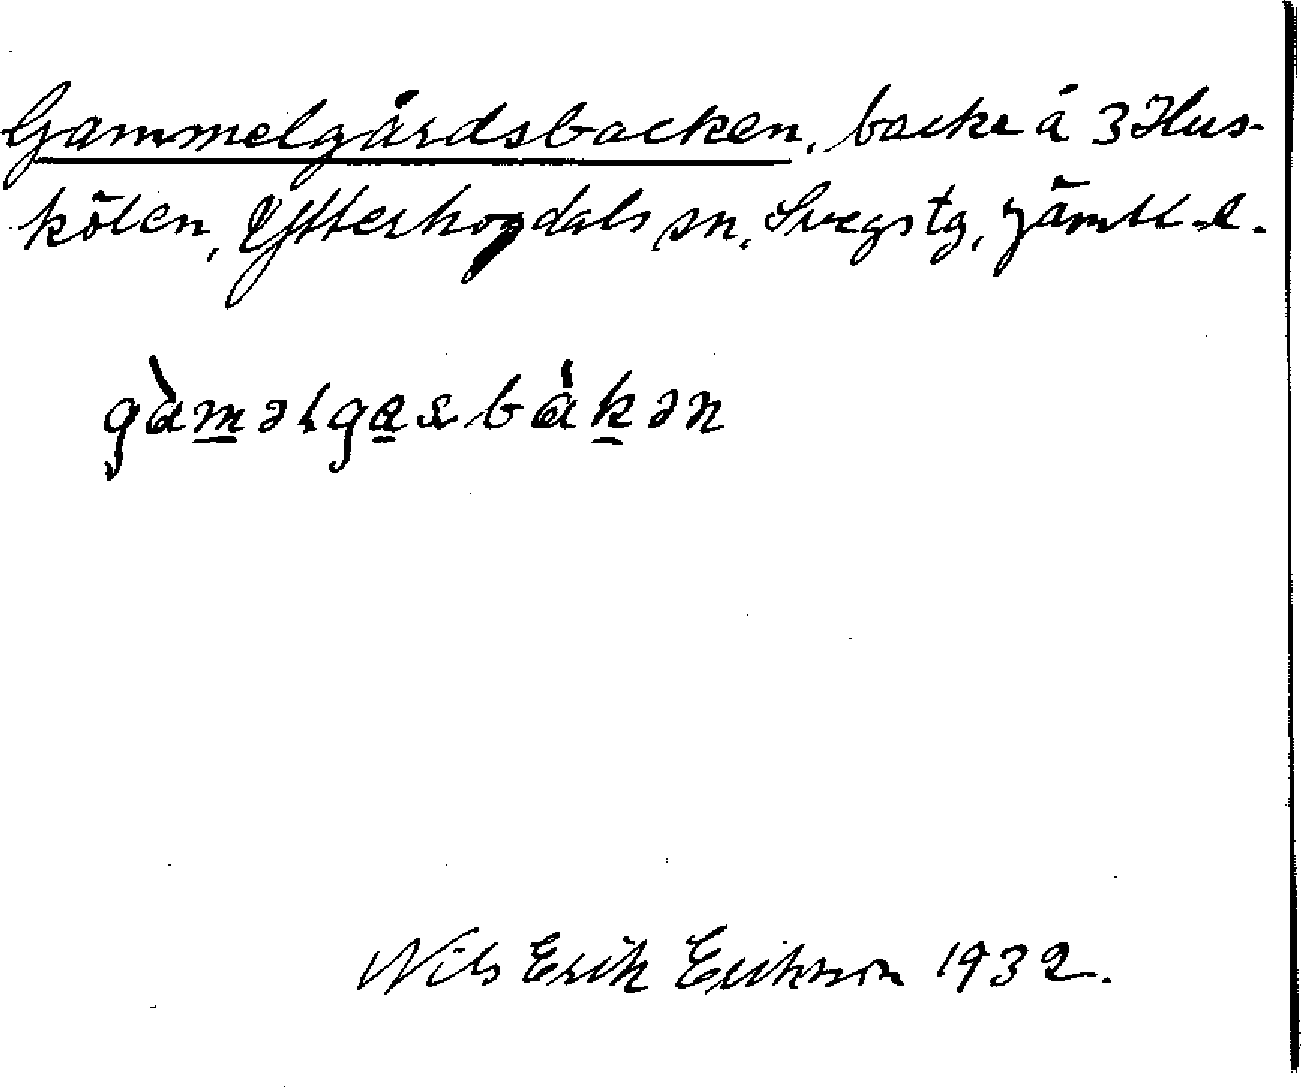 Gammelgårdsbacken, backe å 3 Hus-
kölen, Ytterhogdals sn, Svegs tg, Jämtl. l.
gàməlgasbákən
Nils Erik Erikson 1932.